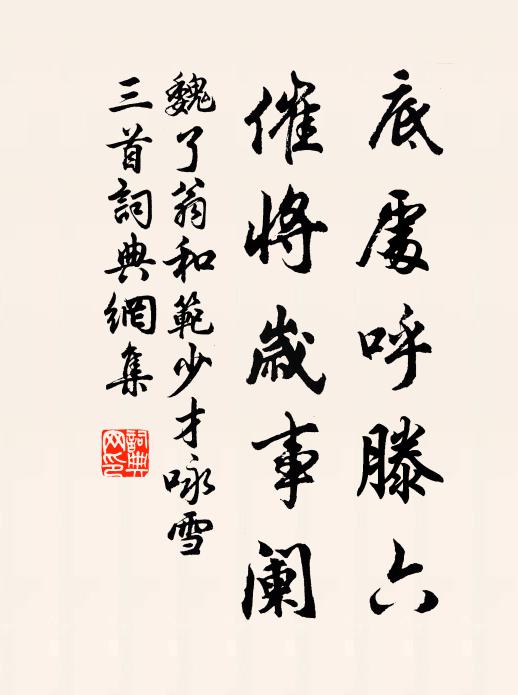 底處呼滕六
催將歲事阑
魏了翁和範少才咏雪
三首詞典網集
詞典网印